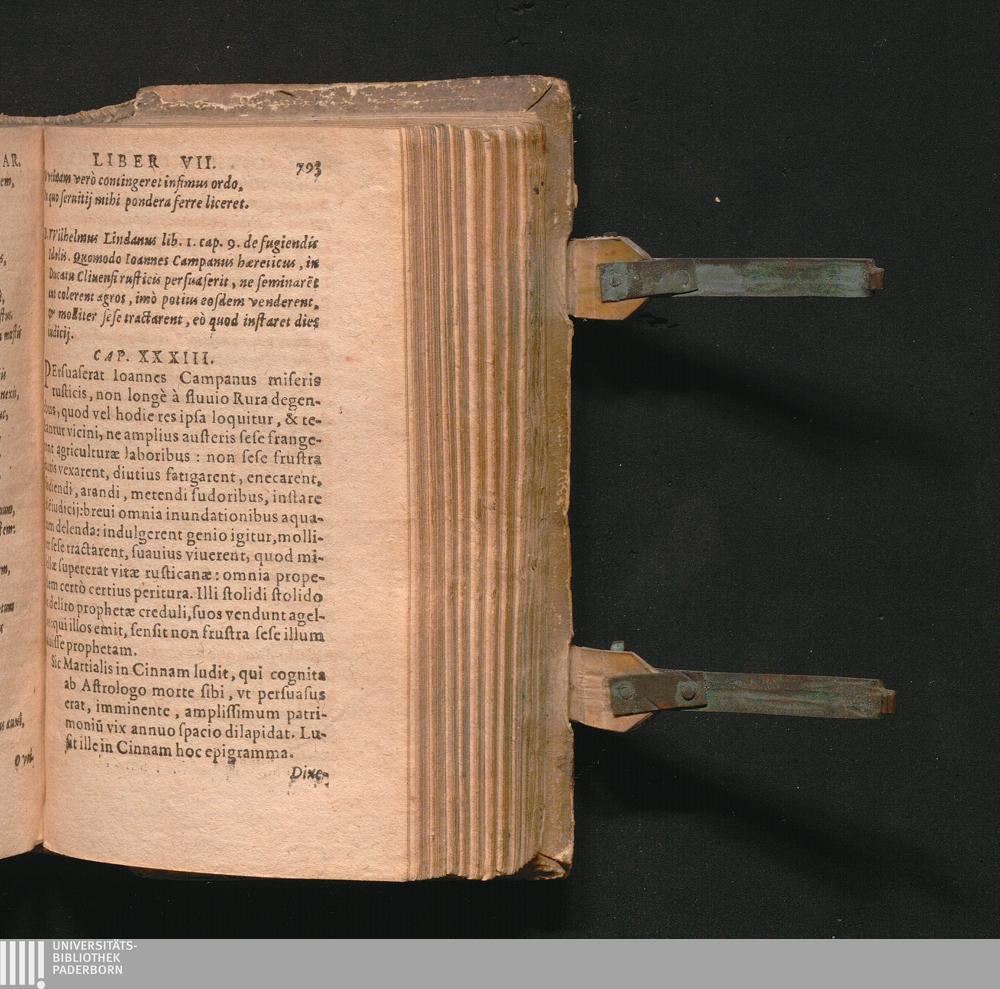 AR.
em,
LIBER VII. 793
verò contingeret infimus ordo,
quo ſeruitij mihi pondera ferre liceret.
Wilhelmus Lindanus lib. 1. cap. 9. de fugiendis
Idolis. Quomodo Ioannes Campanus hæreticus, in
Ducatu Cliuenſi ruſticis perſuaſerit, ne ſeminarēt
aut colerent agros, imò potius eoſdem venderent,
& molliter ſeſe tractarent, eò quod inſtaret dies
iudicij.
CAP. XXXIII.
PErſuaſerat Ioannes Campanus miſeris
ruſticis, non longè à fluuio Rura degen-
bus, quod vel hodie res ipſa loquitur, & te-
antur vicini, ne amplius auſteris ſeſe frange-
nt agriculturæ laboribus: non ſeſe fruſtra
vexarent, diutius fatigarent, enecarent,
odiendi, arandi, metendi ſudoribus, inſtare
iudicij: breui omnia inundationibus aqua-
um delenda: indulgerent genio igitur, molli-
ſeſe tractarent, ſuauius viuerent, quod mi-
ſupererat vitæ ruſticanæ: omnia prope-
em certò certius peritura. Illi ſtolidi ſtolido
deliro prophetæ creduli, ſuos vendunt agel-
qui illos emit, ſenſit non fruſtra ſeſe illum
prophetam.
Sic Martialis in Cinnam ludit, qui cognita
ab Aſtrologo morte ſibi, vt perſuaſus
erat, imminente, ampliſſimum patri-
moniū vix annuo ſpacio dilapidat. Lu-
ſit ille in Cinnam hoc epigramma.
Dixe-
UNIVERSITÄTS-
BIBLIOTHEK
PADERBORN